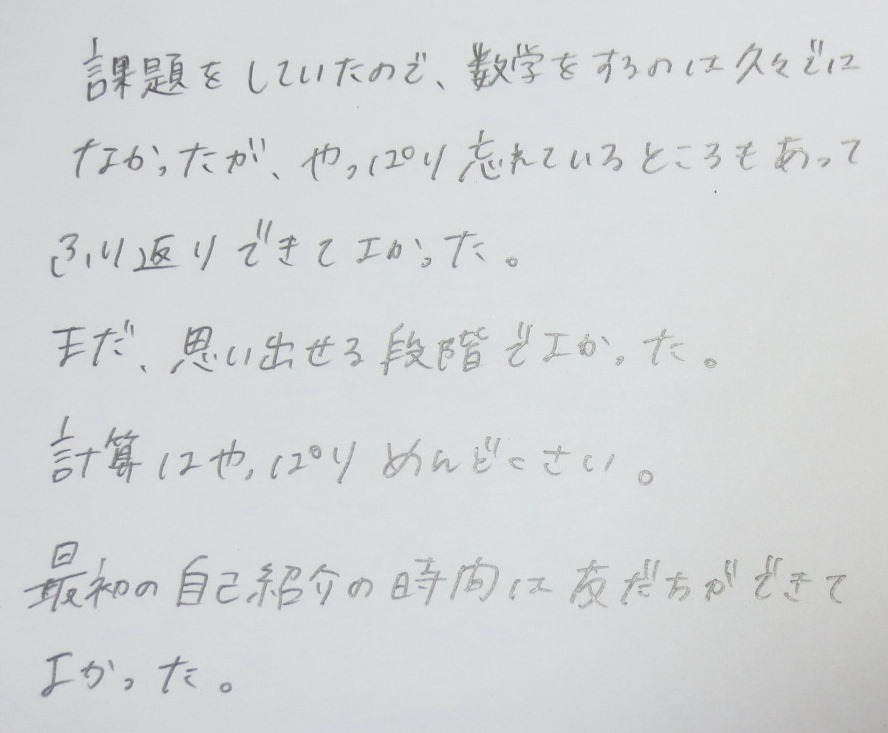 課題をしていたので、数学をするのは久々でに
なかったが、やっぱり忘れているところもあって
ふり返りできてよかった。
まだ、思い出せる段階でよかった。
計算はやっぱりめんどくさい。
最初の自己紹介の時間は友だちができて
よかった。